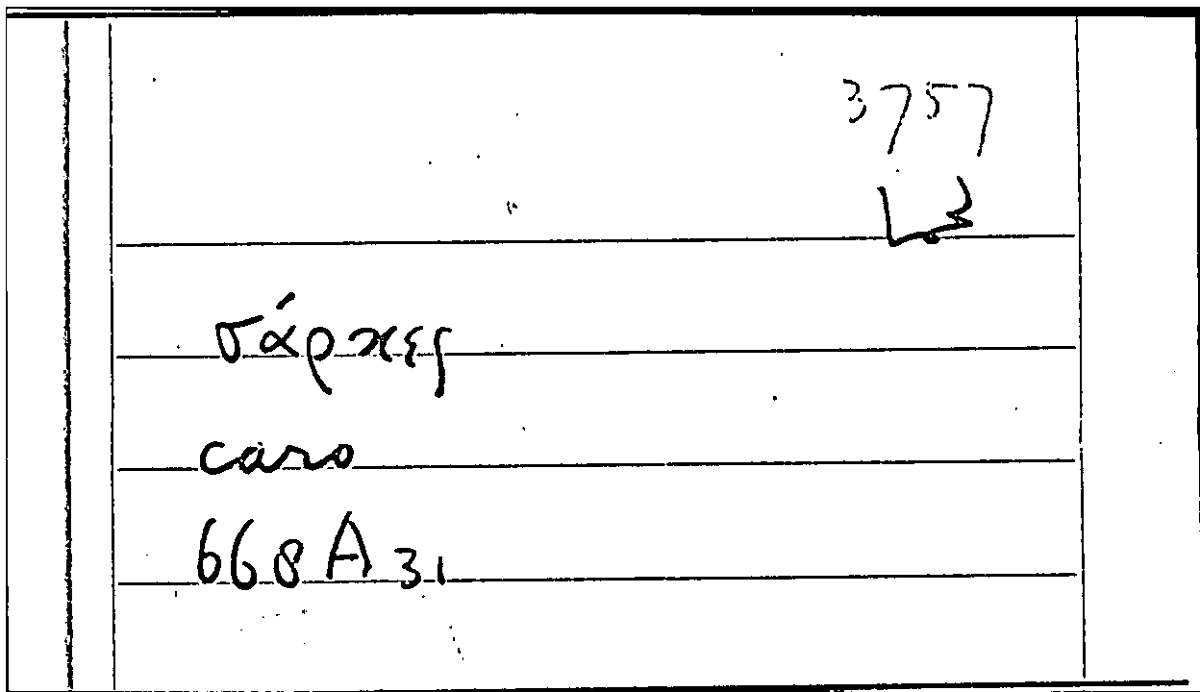 3757
σάρκες
caro
668A31